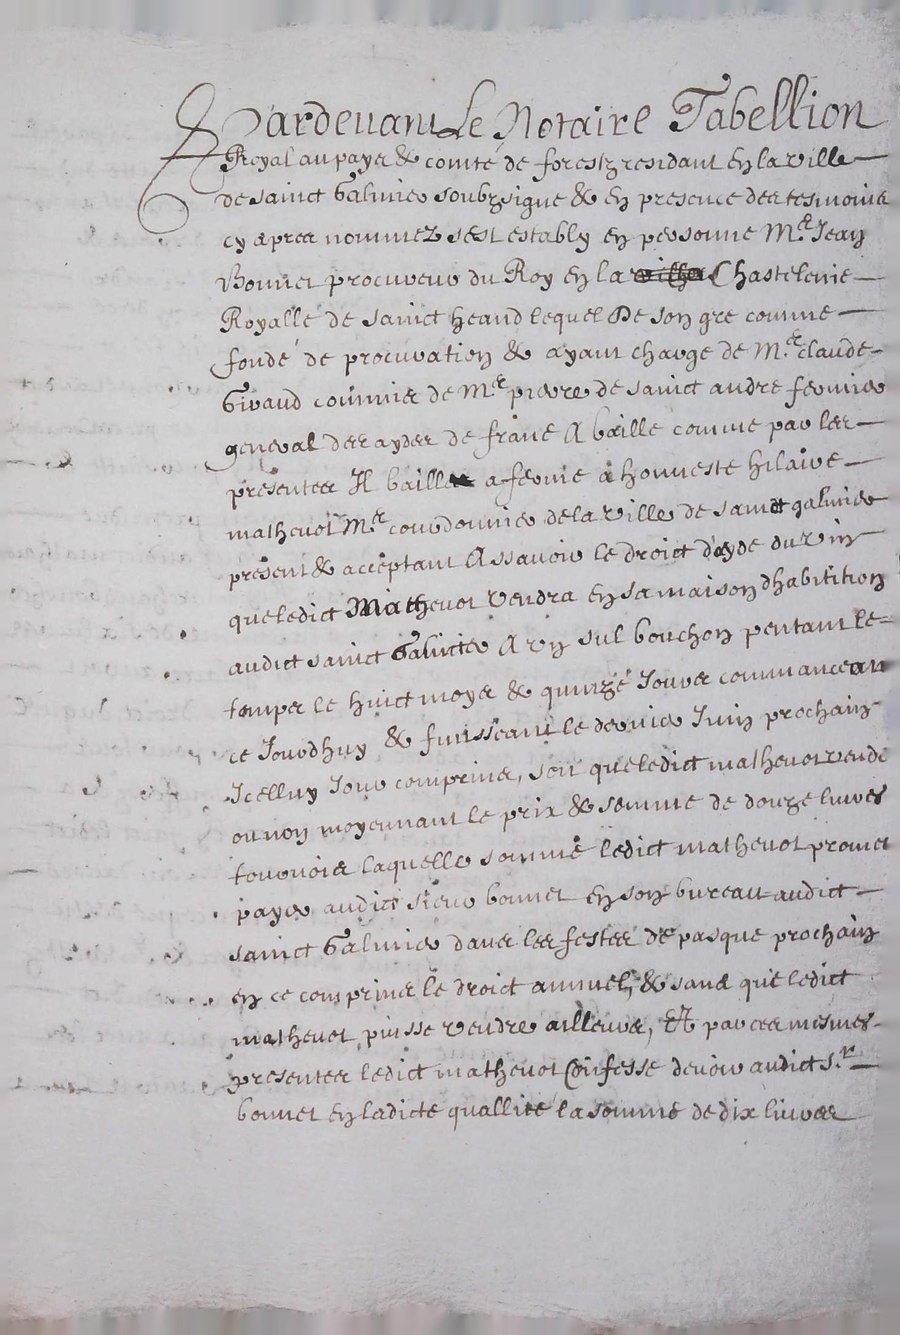 Pardevant Le Notaire Tabellion
Royal au payes & comté de forestz residant en la ville
de sainct Galmier soubzsigné & en presence des tesmoins
cy apres nommez s'est estably en personne Mre Jean
Bonnet procureur du Roy en la Chastelenie
Royalle de sainct heand lequel De son gre comme
fondé de procuration & ayant charge de Mre claude
Giraud commis de Mre pierre de sainct andre fermier
general des aydes de france A baillé comme par les
presentes Il baille a ferme à honneste hilaire
mathevot Mre cordonnier de la ville de sainct galmier
present & acceptant Assavoir le droict d'ayde du vin
que ledict Mathevot vendra en sa maison d'habitition
audict sainct Galmier A un sul bouchon pentant le
temps le huict moys & quinze Jours commanceant
ce Jourdhuy & finisseant le dernier Juin prochain
Icelluy Jour comprins, soit que ledict mathevot vende
ou non moyennant le prix & somme de douze livres
tournois laquelle somme ledict mathevot promet
payer audict sieur bonnet en son bureau audict
sainct Galmier dans les festes de pasque prochain
en ce comprins le droict annuel, & sans que ledict
mathevot puisse vendre ailleurs, Et par ces mesmes
presentes ledict mathevot Confesse devoir audict Sr
bonnet en ladicte quallité la somme de dix livres